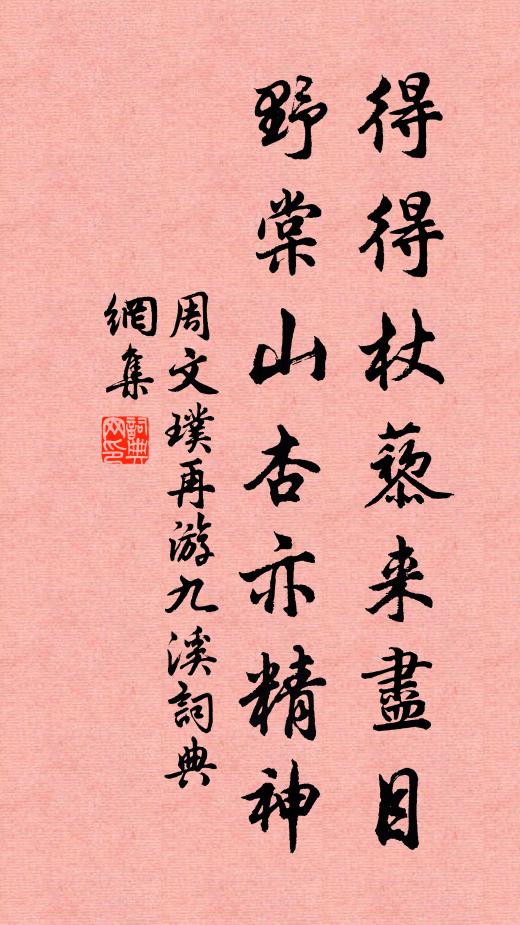 得得杖藜来盡目
野棠山杏亦精神
周文璞再游九溪詞典
網集
詞典網印